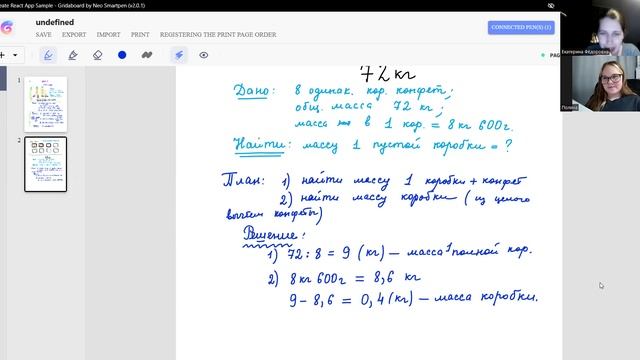 eate React App Sample - Gridaboard by Neo Smartpen (v2.0.1)
undefined
SAVE EXPORT IMPORT PRINT REGISTERING THE PRINT PAGE ORDER
CONNECTED PEN(S) (1)
PAG
Екатерина Фёдоровна
Полина
1
2
72 кг
Дано: 8 одинак. кор. конфет;
общ. масса 72 кг;
масса в 1 кор. = 8 кг 600 г.
Найти: массу 1 пустой коробки = ?
План: 1) найти массу 1 коробки + конфет
2) найти массу коробки (из целого
вычтем конфеты)
Решение:
1) 72 : 8 = 9 (кг) — масса 1 полной кор.
2) 8 кг 600 г = 8,6 кг
9 - 8,6 = 0,4 (кг) — масса коробки.